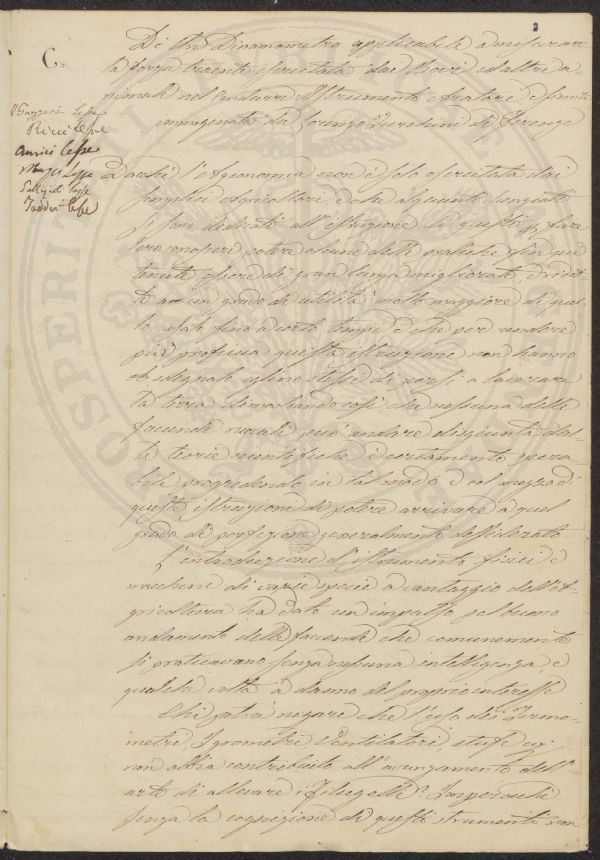 2
C.
Di un Dinamometro applicabile a misurare
la forza traente esercitata dai Bovi ed altri a-
nimali nel condurre Istrumenti Aratori e simili
immaginato da Lorenzo Turchini di Firenze
Ricci lesse
Amici lesse
Taddei lesse
Dacché l'Agronomia non è solo esercitata dai
semplici Agricoltori, e che alquanti
si sono dedicati all'istruzione di questi
loro conoscere, potere alcune delle pratiche fin qui
tenute essere di gran lunga migliorate, e ridot-
te a un grado di utilità molto maggiore di quel-
lo usate fino a certi tempi e che per rendere
più proficua questa istruzione non hanno
sdegnato eglino stessi di porsi a lavorare
la terra dimostrando così, che nessuna delle
faccende rurali può andare disgiunta dal-
le teorie scientifiche è certamente spera-
bile progredendo in tal modo e col mezzo di
queste istruzioni di potere arrivare a quel
grado di perfezione generalmente desiderato.
L'introduzione d'istrumenti fisici e
macchine di varie specie a vantaggio dell'A-
gricoltura ha dato un impulso pel buono
andamento delle faccende che comunemente
si praticavano senza nessuna intelligenza, e
qualche volta a danno del proprio interesse
Chi potrà negare che l'uso dei Termo-
metri, Igrometri, Ventilatori, stufe
non abbia contribuito all'avanzamento dell'
arte di allevare i Filugelli? Imperocché
senza la cognizione di questi strumenti non